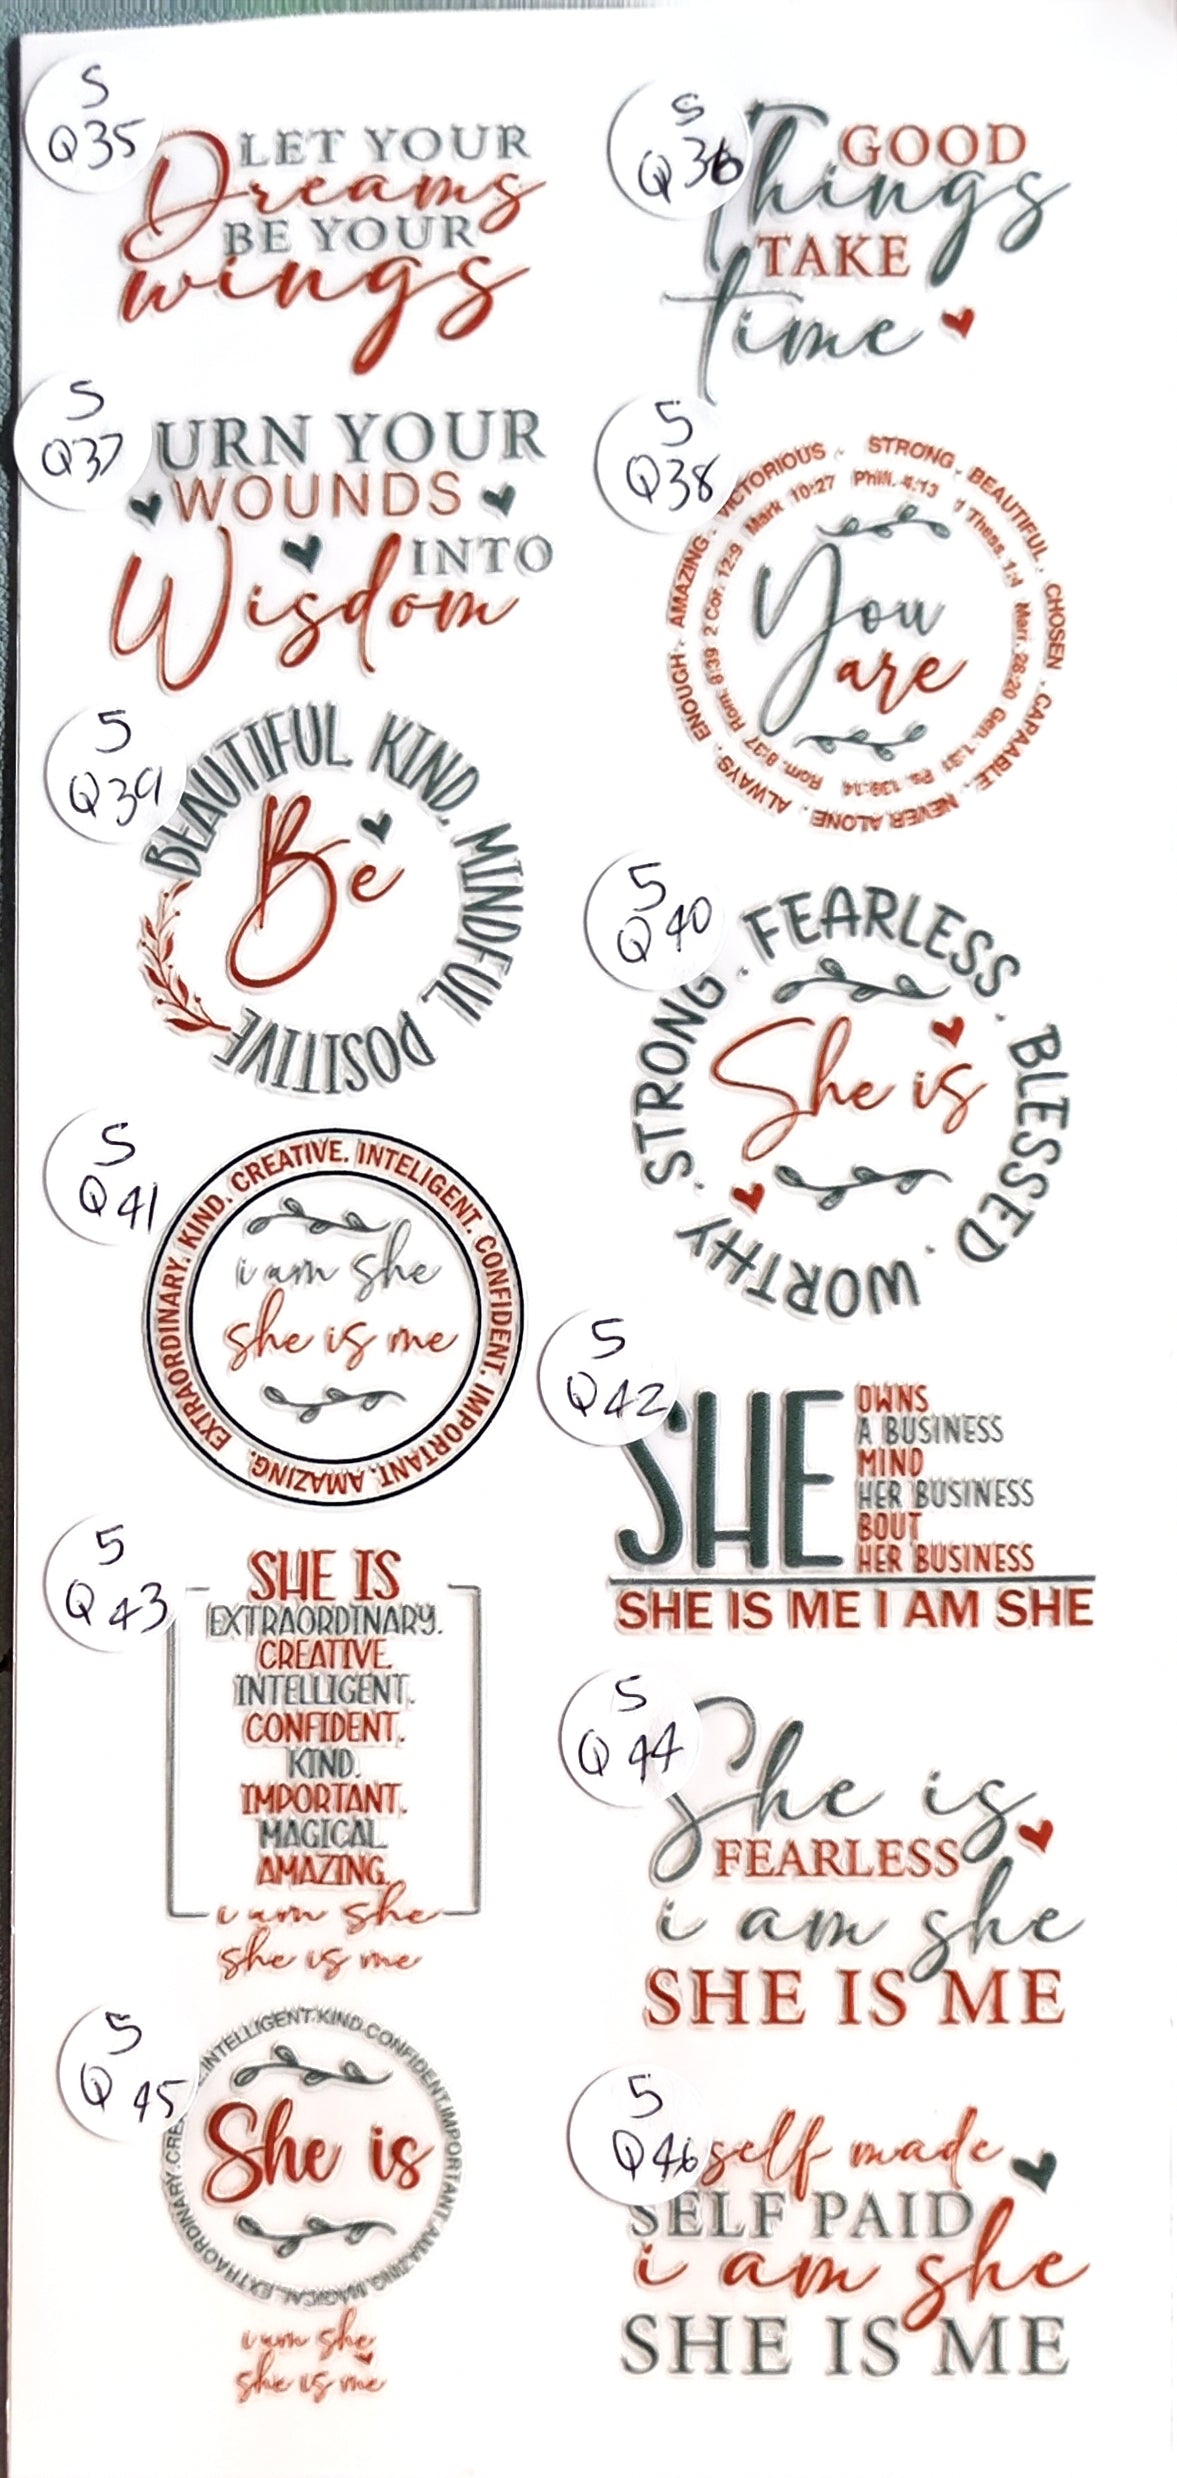 S
Q35
LET YOUR
Dreams
BE YOUR
wings
S
Q36
GOOD
Things
TAKE
time
S
Q37
URN YOUR
WOUNDS
INTO
Wisdom
S
Q38
STRONG . BEAUTIFUL . CHOSEN . CAPAABLE . NEVER ALONE . ALWAYS . ENOUGH . AMAZING . VICTORIOUS .
Phill. 4:13 1 Thess. 1:4 Marr. 28:20 Gen. 1:31 Ps. 139:14 Rom. 8:37 Rom. 8:39 2 Cor. 12:9 Mark 10:27
You
are
S
Q39
BEAUTIFUL. KIND. MINDFUL. POSITIVE
Be
S
Q40
STRONG . FEARLESS . BLESSED . WORTHY .
She is
S
Q41
EXTRAORDINARY. KIND. CREATIVE. INTELIGENT. CONFIDENT. IMPORTANT. AMAZING.
i am she
she is me
S
Q42
SHE
OWNS
A BUSINESS
MIND
HER BUSINESS
BOUT
HER BUSINESS
SHE IS ME I AM SHE
S
Q43
SHE IS
EXTRAORDINARY.
CREATIVE.
INTELLIGENT.
CONFIDENT.
KIND.
IMPORTANT.
MAGICAL
AMAZING.
i am she
she is me
S
Q44
She is
FEARLESS
i am she
SHE IS ME
S
Q45
EXTRAORDINARY.CRE .INTELLIGENT.KIND.CONFIDENT.IMPORTANT.AMAZING.MAGICAL
She is
i am she
she is me
S
Q46
self made
SELF PAID
i am she
SHE IS ME